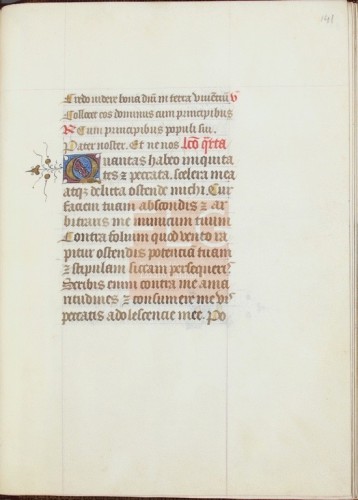 141
Credo videre bona dñi in terra viventiū V
Collocet eos dominus cum principibus
R Cum principibus populi sui.
Pater noster. Et ne nos lcō qrta
Quantas habeo iniquita
tes ⁊ peccata. scelera mea
atqz delicta ostende michi. Cur
faciem tuam abscondis ⁊ ar
bitraris me inimicum tuum
Contra folium quod vento ra
pitur ostendis potenciā tuam
⁊ stipulam siccam persequeris
Scribis enim contra me ama
ritudines ⁊ consumere me vis
peccatis adolescencie mee. Po